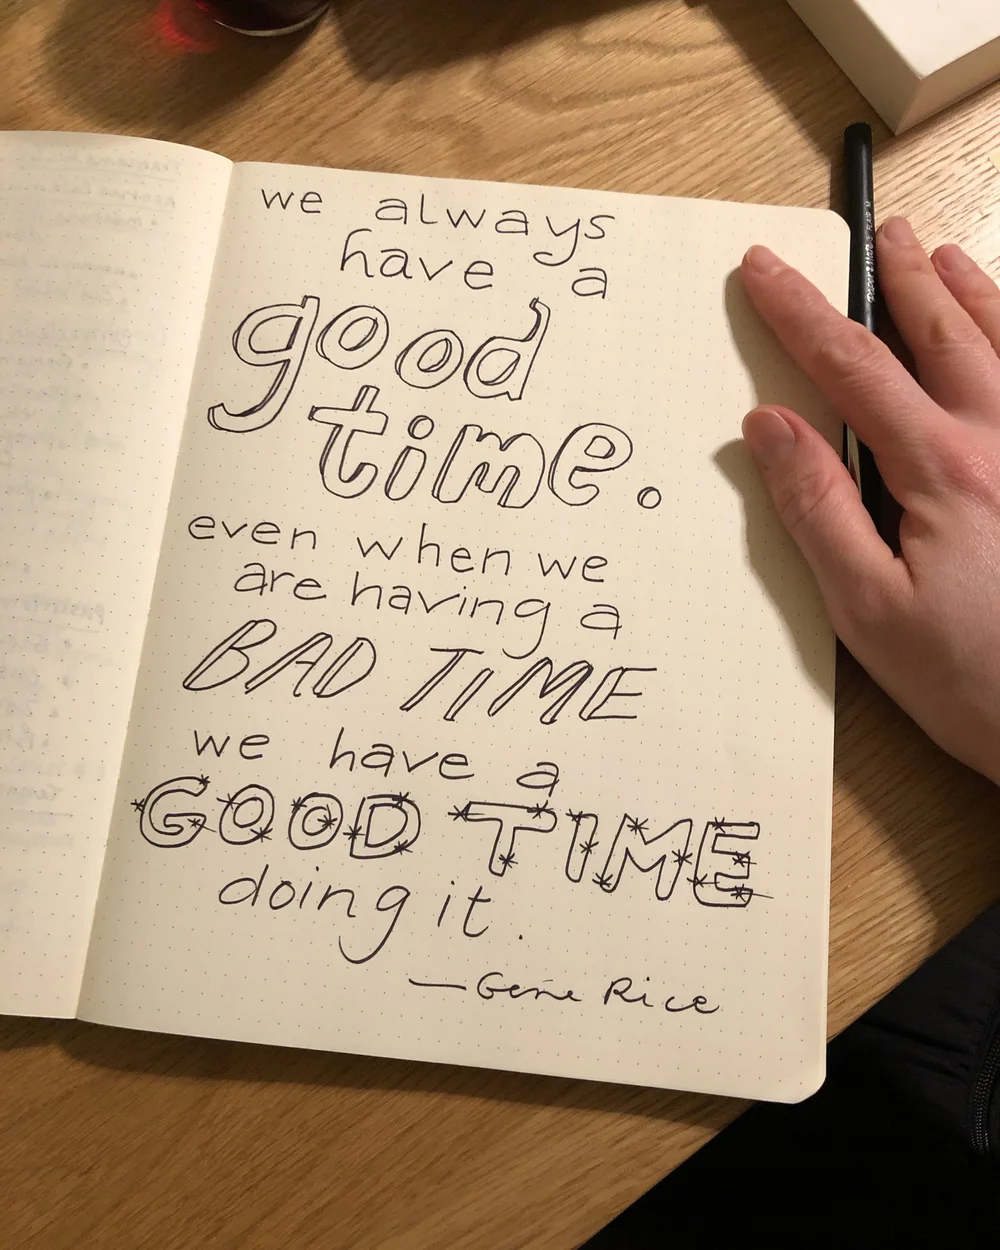 we always
have a
good
time.
even when we
are having a
BAD TIME
we have a
GOOD TIME
doing it.
—Gene Rice
Paper Mate